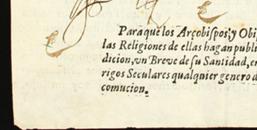 Para que los Arçobispos, y Obi
las Religiones de ellas hagan publi
dicion, un Breve de su Santidad, en
rigos Seculares qualquier genero d
comunion.